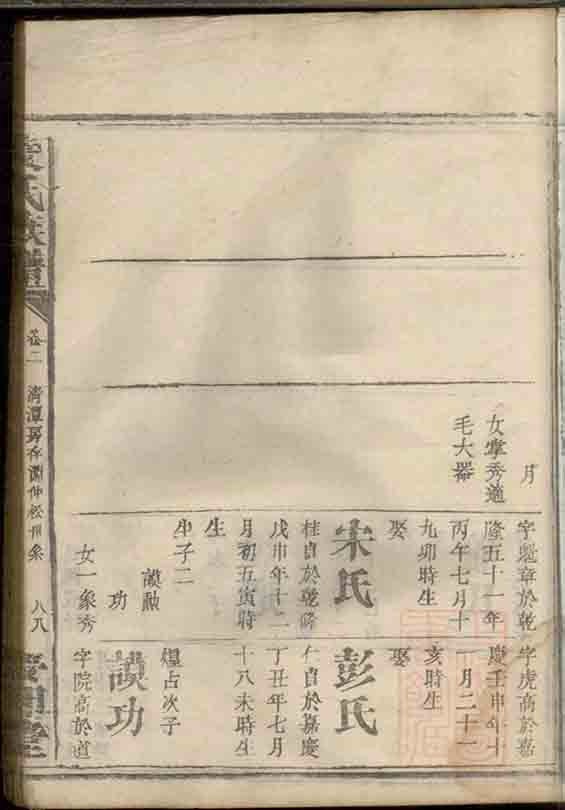 月
女掌秀適
毛大器
字魁章於乾
隆五十一年
丙午七月十
九卯時生
娶
宋氏
桂貞於乾隆
戊申年十二
月初五寅時
生
生子二
謨勲
功
女一象秀
字虎高於嘉
慶壬申年十
一月二十一
亥時生
娶
彭氏
仁貞於嘉慶
丁丑年七月
十八未時生
煌占次子
謨功
字院高於道
氏族譜
卷二
清潭房存淵仲松州象
八八